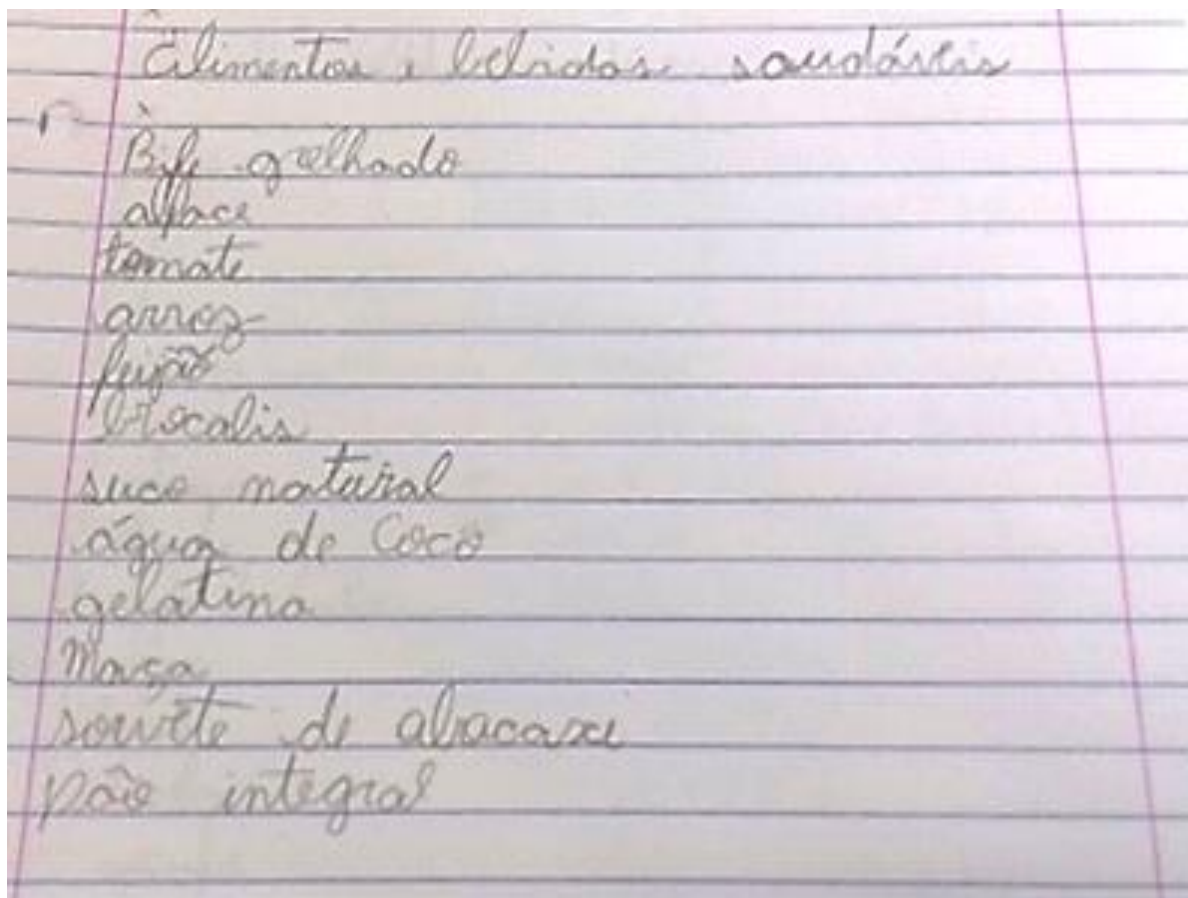 Alimentos e bebidas saudáveis
Bife grelhado
alface
tomate
arroz
feijão
brocalis
suco natural
água de Coco
gelatina
Maça
sorvete de abacaxi
pão integral